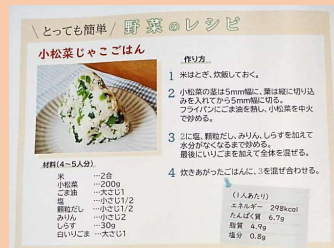 とっても簡単
野菜のレシピ
小松菜じゃこごはん
材料(4~5人分)
米 …2合
小松菜 …200g
ごま油 …大さじ1
塩 …小さじ1/2
顆粒だし …小さじ1/2
みりん …小さじ2
しらす …30g
白いりごま …大さじ1
作り方
1 米はとぎ、炊飯しておく。
2 小松菜の茎は5mm幅に、葉は縦に切り込
みを入れてから5mm幅に切る。
フライパンにごま油を熱し、小松菜を中火
で炒める。
3 2に塩、顆粒だし、みりん、しらすを加えて
水分がなくなるまで炒める。
最後にいりごまを加えて全体を混ぜる。
4 炊きあがったごはんに、3を混ぜ合わせる。
(1人あたり)
エネルギー 298kcal
たんぱく質 6.7g
脂質 4.9g
塩分 0.8g